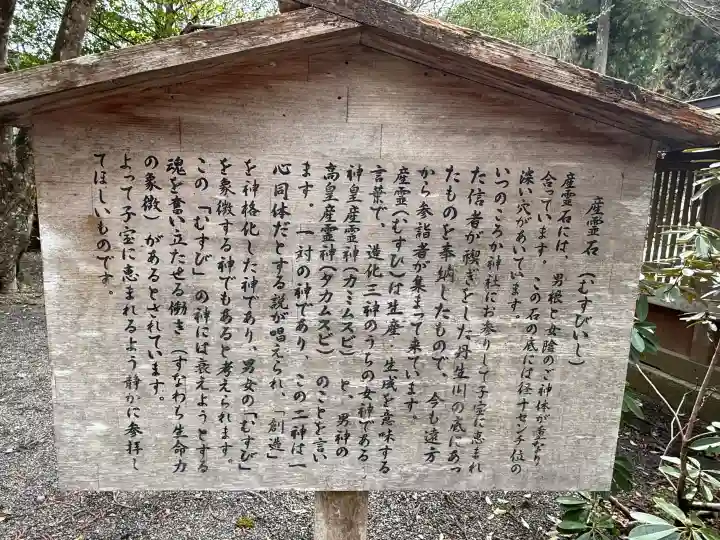 産霊石（むすびいし）
産霊石には、男根と女陰のご神体が重なり
合っています。この石の底には径十センチ位の
深い穴があいています。
いつのころか神社にお参りして子宝に恵まれ
た信者が禊ぎをした丹生川の底にあっ
たものを奉納したもので、今も遠方
から参詣者が集まって来ています。
産霊（むすび）は生産・生成を意味する
言葉で、造化三神のうちの女神である
神皇産霊神（カミムスビ）と、男神の
高皇産霊神（タカムスビ）のことを言い
ます。一対の神であり、この二神は一
心同体だとする説が唱えられ、「創造」
を神格化した神であり、男女の「むすび」
を象徴する神でもあると考えられます。
この「むすび」の神には衰えようとする
魂を奮い立たせる働き（すなわち生命力
の象徴）があるとされています。
よって子宝に恵まれるよう静かに参拝し
てほしいものです。